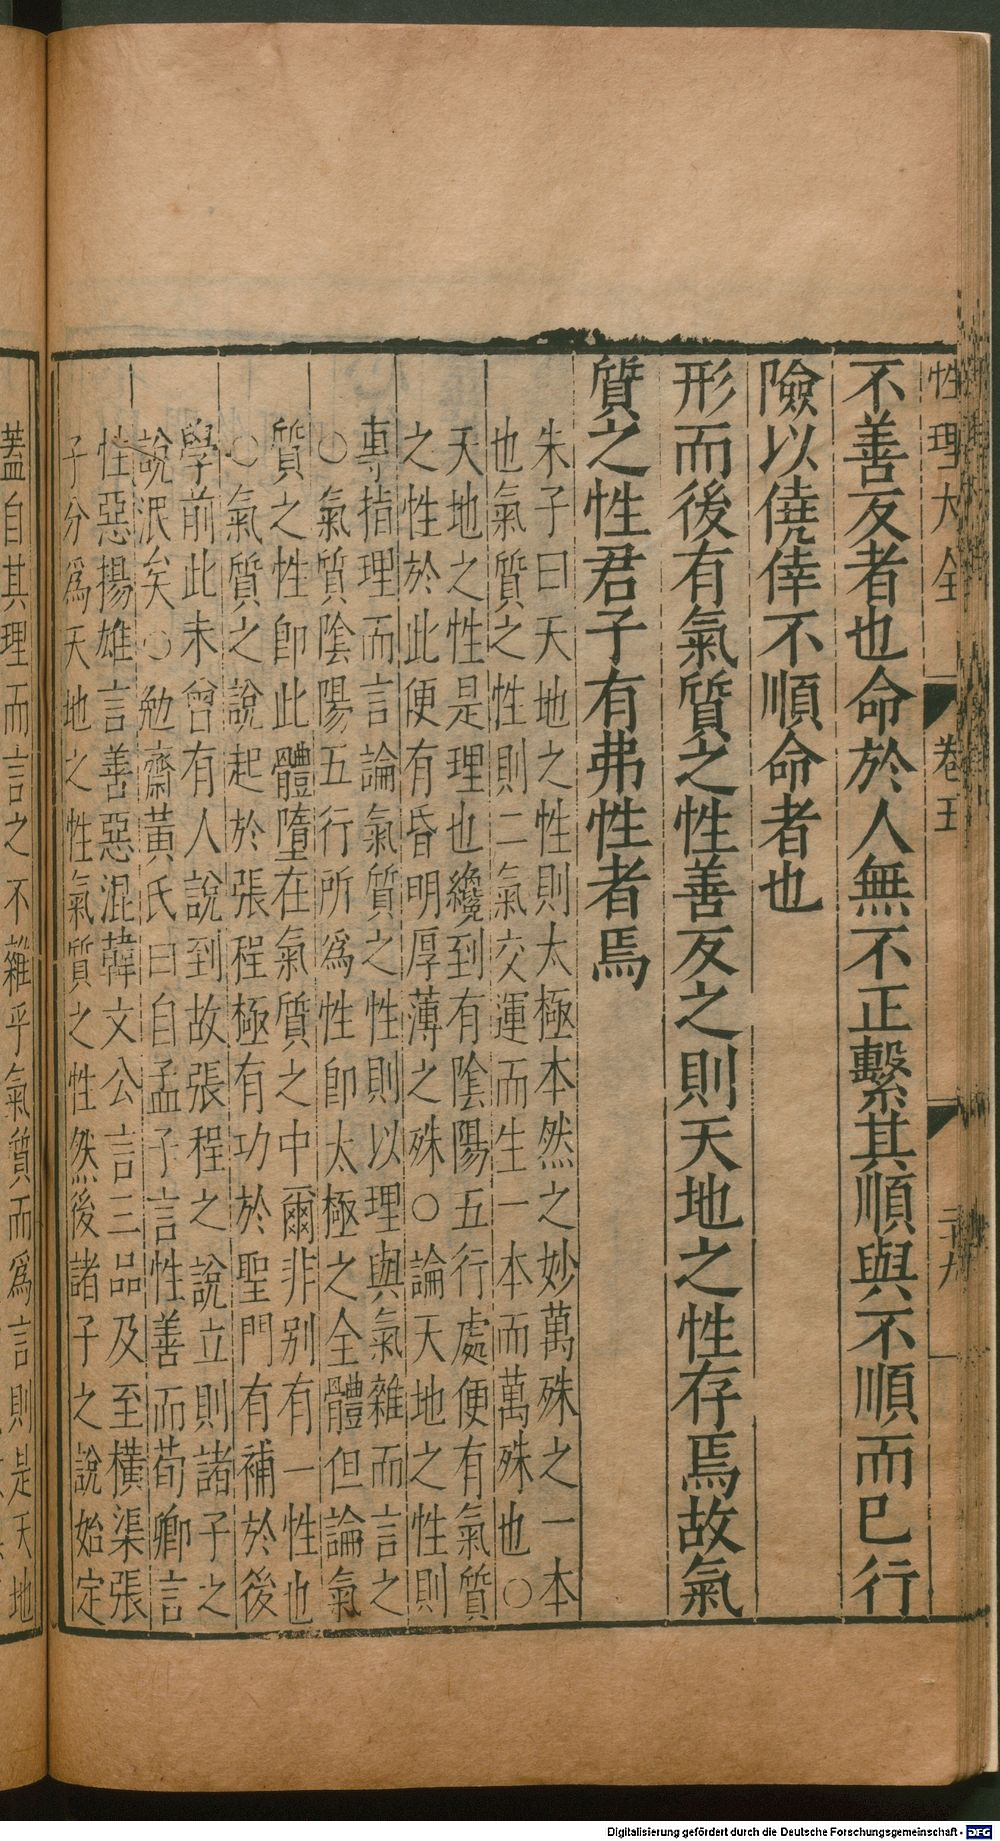 性理大全 卷五 二十九
不善反者也命於人無不正繫其順與不順而已行
險以僥倖不順命者也
形而後有氣質之性善反之則天地之性存焉故氣
質之性君子有弗性者焉
朱子曰天地之性則太極本然之妙萬殊之一本
也氣質之性則二氣交運而生一本而萬殊也○
天地之性是理也纔到有陰陽五行處便有氣質
之性於此便有昏明厚薄之殊○論天地之性則
專指理而言論氣質之性則以理與氣雜而言之
○氣質陰陽五行所爲性卽太極之全體但論氣
質之性卽此體墮在氣質之中爾非别有一性也
○氣質之說起於張程極有功於聖門有補於後
學前此未曾有人說到故張程之說立則諸子之
說泯矣○勉齋黃氏曰自孟子言性善而荀卿言
性惡揚雄言善惡混韓文公言三品及至横渠張
子分爲天地之性氣質之性然後諸子之說始定
蓋自其理而言之不雜乎氣質而爲言則是天地
Digitalisierung gefördert durch die Deutsche Forschungsgemeinschaft - DFG